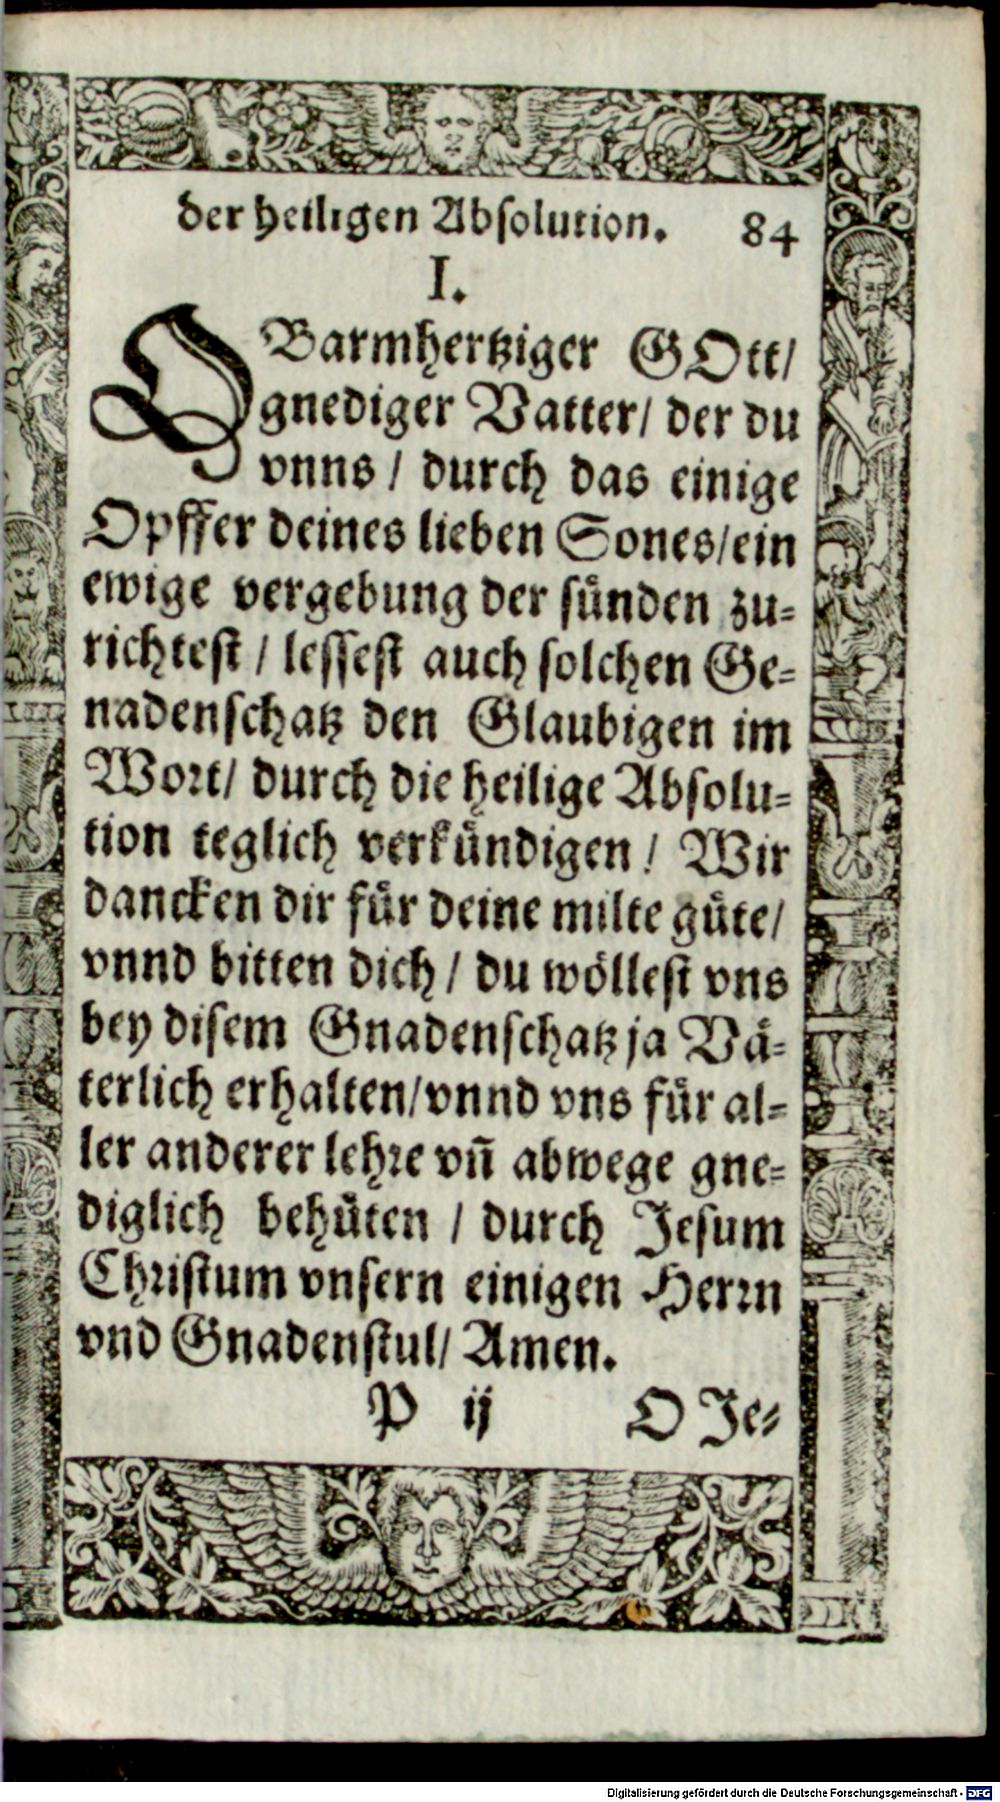 der heiligen Absolution. 84
I.
O Barmhertziger GOtt/
gnediger Vatter/ der du
vnns / durch das einige
Opffer deines lieben Sones/ein
ewige vergebung der sünden zu-
richtest / lessest auch solchen Ge-
nadenschatz den Glaubigen im
Wort/ durch die heilige Absolu-
tion teglich verkündigen / Wir
dancken dir für deine milte güte/
vnnd bitten dich / du wöllest vns
bey disem Gnadenschatz ja Vä-
terlich erhalten/vnnd vns für al-
ler anderer lehre vñ abwege gne-
diglich behüten / durch Jesum
Christum vnsern einigen Herrn
vnd Gnadenstul/ Amen.
P ij O Je-
Digitalisierung gefördert durch die Deutsche Forschungsgemeinschaft - DFG